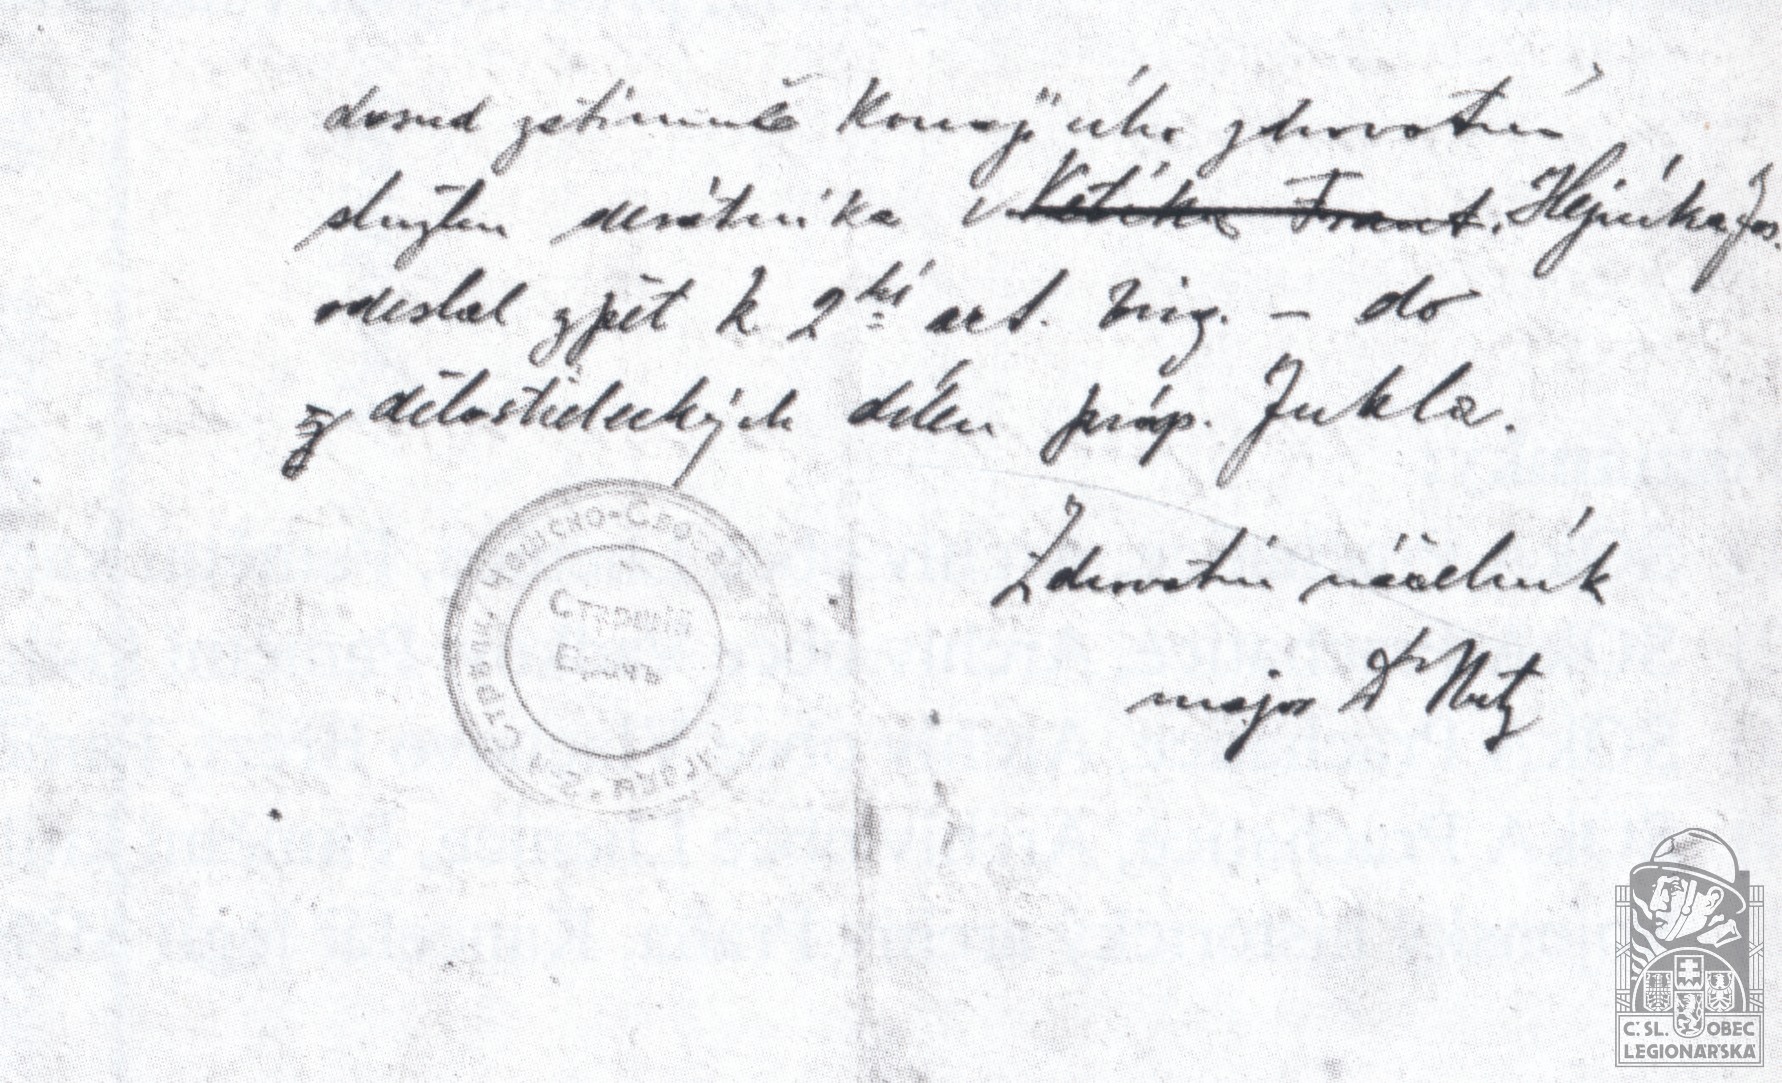 dosud zatímně konajícího zdravotní
službu desátníka Vetíka Frant. Hejníka Jos.
odeslal zpět k 2hé art. brig. – do
dělostřeleckých dílen práp. Jukla.
Zdravotní náčelník
major Dr
2-я Стрѣлк. Чешско-Словац
Старшій
Врачъ
Č. SL. OBEC
LEGIONÁŘSKÁ